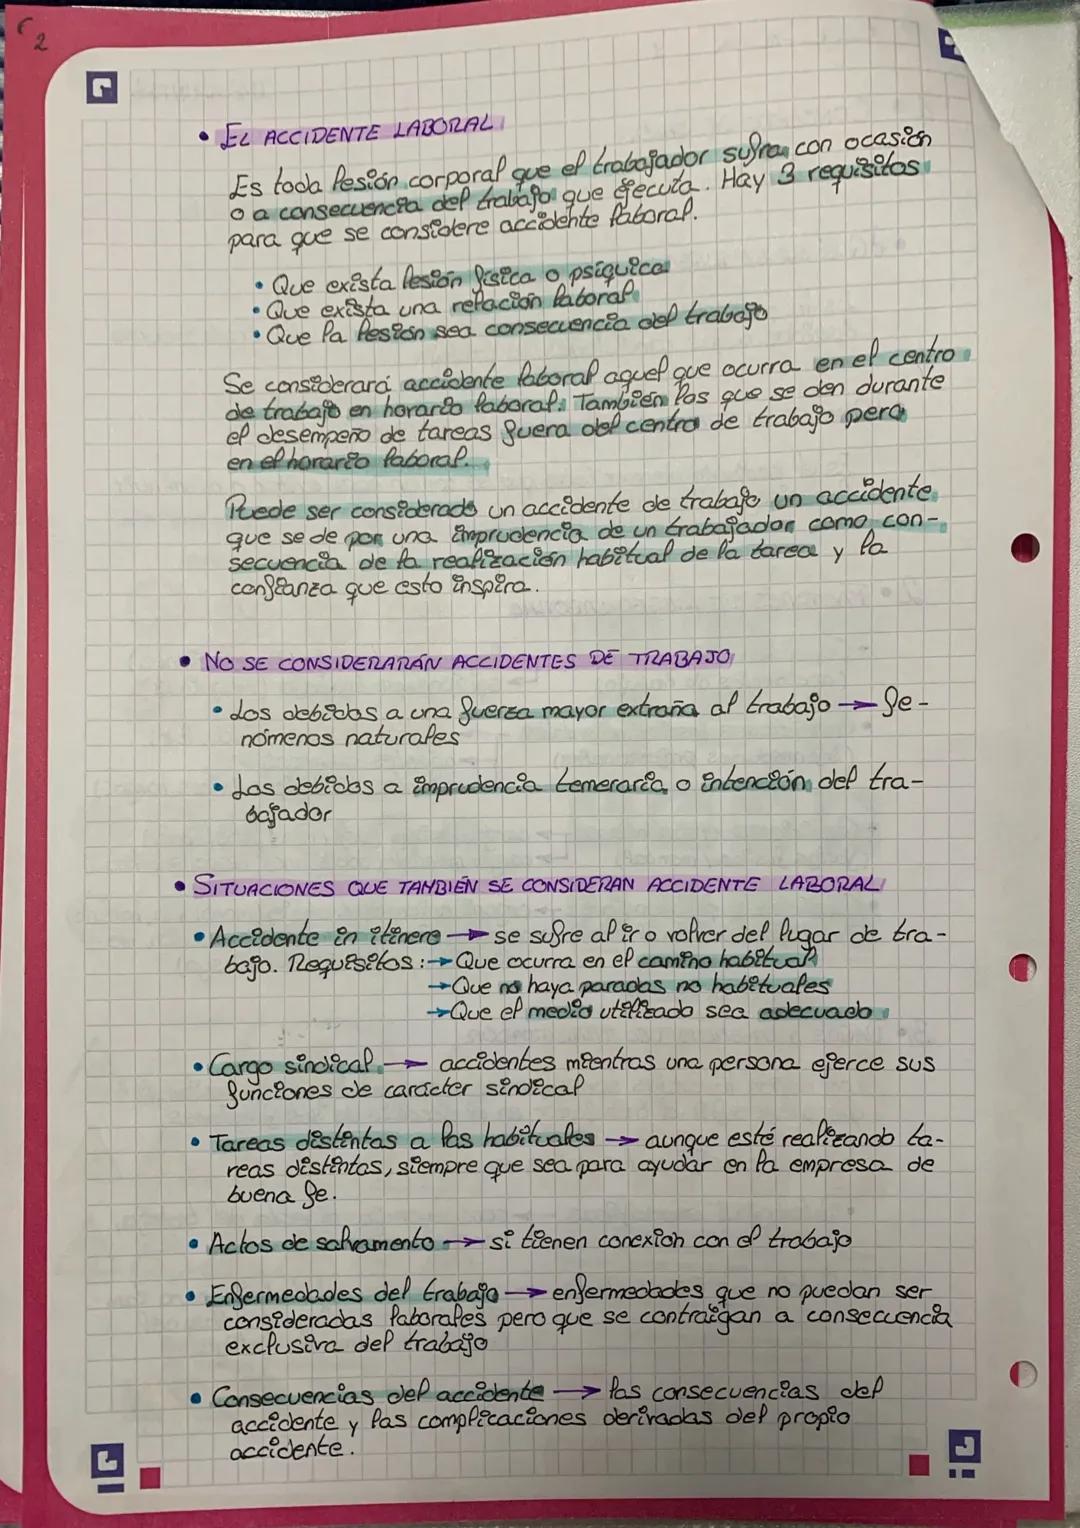 2
• EL ACCIDENTE LABORAL
Es toda lesión corporal que el trabajador sufra con ocasión
o a consecuencia del trabajo que ejecuta. Hay 3 requisitos
para que se considere accidente laboral.
• Que exista lesión física o psíquica
• Que exista una relación laboral
• Que la lesión sea consecuencia del trabajo
Se considerará accidente laboral aquel que ocurra en el centro
de trabajo en horario laboral. También los que se den durante
el desempeño de tareas fuera del centro de trabajo pero
en el horario laboral.
Puede ser considerado un accidente de trabajo un accidente
que se de por una imprudencia de un trabajador como con-
secuencia de la realización habitual de la tarea y la
confianza que esto inspira.
• NO SE CONSIDERARÁN ACCIDENTES DE TRABAJO
• Los debidos a una fuerza mayor extraña al trabajo → fe-
nómenos naturales
• Los debidos a imprudencia temeraria o intención del tra-
bajador
• SITUACIONES QUE TAMBIÉN SE CONSIDERAN ACCIDENTE LABORAL
• Accidente in itinere → se sufre al ir o volver del lugar de tra-
bajo. Requisitos: → Que ocurra en el camino habitual
→ Que no haya paradas no habituales
→ Que el medio utilizado sea adecuado
• Cargo sindical → accidentes mientras una persona ejerce sus
funciones de carácter sindical
• Tareas distintas a las habituales → aunque esté realizando ta-
reas distintas, siempre que sea para ayudar en la empresa de
buena fe.
• Actos de salvamento → si tienen conexión con el trabajo
• Enfermedades del trabajo → enfermedades que no puedan ser
consideradas laborales pero que se contraigan a consecuencia
exclusiva del trabajo
• Consecuencias del accidente → las consecuencias del
accidente y las complicaciones derivadas del propio
accidente.